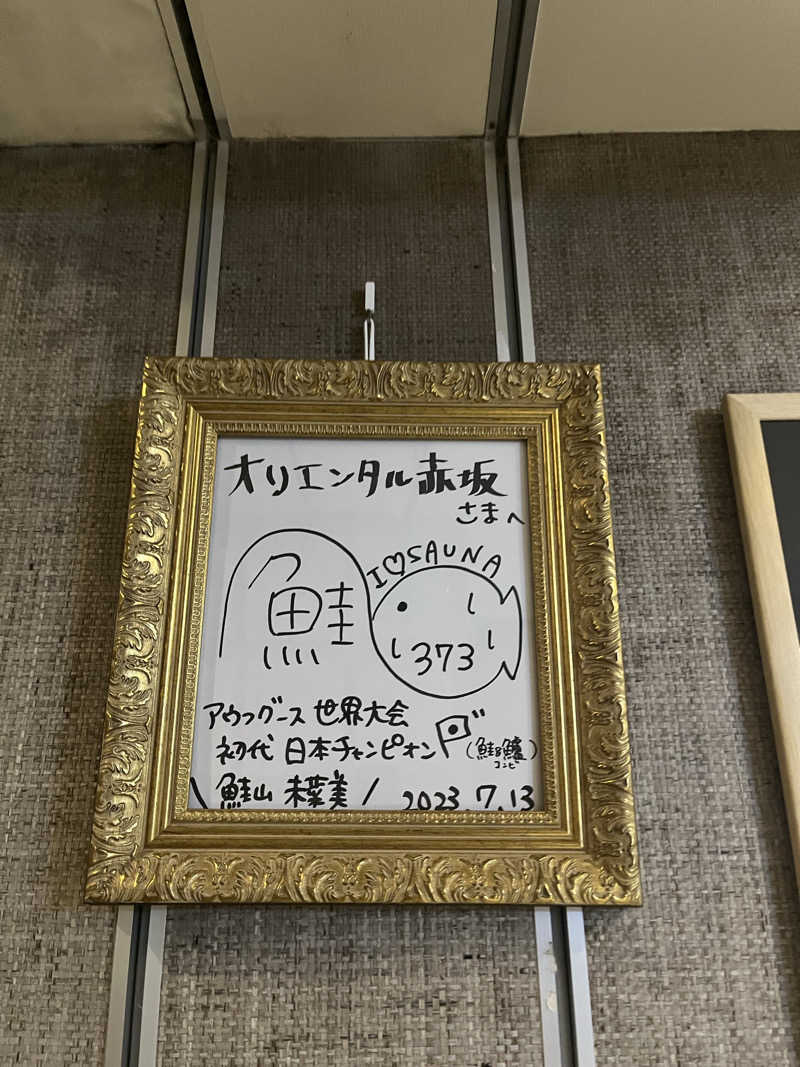 オリエンタル赤坂
さまへ
I♡SAUNA
鮭
373
アウフグース 世界大会
初代 日本チャンピオン
(鮭&鱸)
コンビ
\鮭山 未菜美/ 2023.7.13